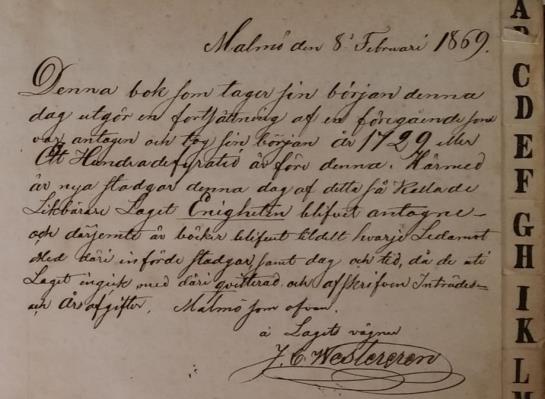 Malmö den 8 Februari 1869.
Denna bok som tager sin början denna
dag utgör en fortsättning af en föregående som
var antagen och tog sin början år 1729 eller
Ett Hundradefyratio år före denna. Härmed
är nya stadgar denna dag af detta så kallade
Likbärare Laget Enigheten blifvit antagne
och därjemte är böcker blifvit tildelt hvarje Ledamot
med däri införde stadgar, samt dag och tid, då de uti
Laget ingick med däri qvitterad och afskrifven Inträdes-
och Årsafgifter. Malmö som ofvan.
å Lagets vägnar
J. C. Westergren
A
C
D
E
F
G
H
I
K
L
M